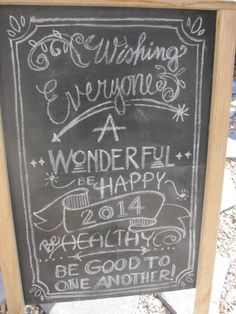 Wishing
Everyone
A
WONDERFUL
BE HAPPY
2014
BE HEALTHY
BE GOOD TO
ONE ANOTHER!